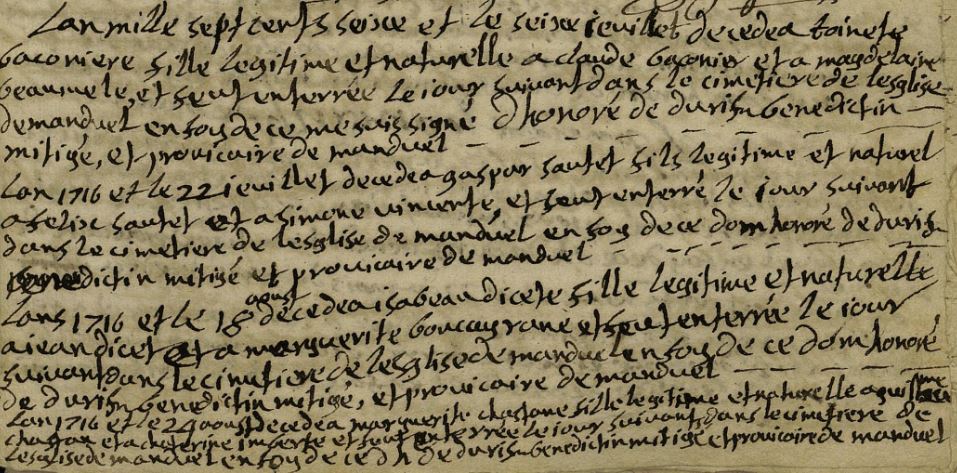 Lan mille sept cents seise et le seise ieuillet decedea toinete
baconiere fille legitime et naturelle a claude baconier et a magdelaine
beaumele, et feut enterrée le iour suivant dans le cimetiere de lesglise
de manduel en foy de ce me suis signé D honoré de durisn benedictin
mitigé, et provicaire de manduel
Lan 1716 et le 22 ieuillet deceadea gaspar sautet fils legitime et naturel
a felix sautet et a simone vincente, et feut enterré le iour suivant
dans le cimetiere de lesglise de manduel en foy de ce dom honoré de durisn
benedictin mitigé et provicaire de manduel
Lans 1716 et le 18 aoust deceadea isabeau dicete fille legitime et naturelle
a iean dicet et a marguerite boucayrane et feut enterrée le iour
suivant dans le cimetiere de lesglise de manduel en foy de ce dom honoré
de durisn benedictin mitigé, et provicaire de manduel
Lan 1716 et le 24 aoust deceadea marguerite chastane fille legitime et naturelle a
et a catherine imberte et feut enterrée le iour suivant dans le cimetiere de
lesglise de manduel en foy de ce d h de durisn benedictin mitigé et provicaire de manduel